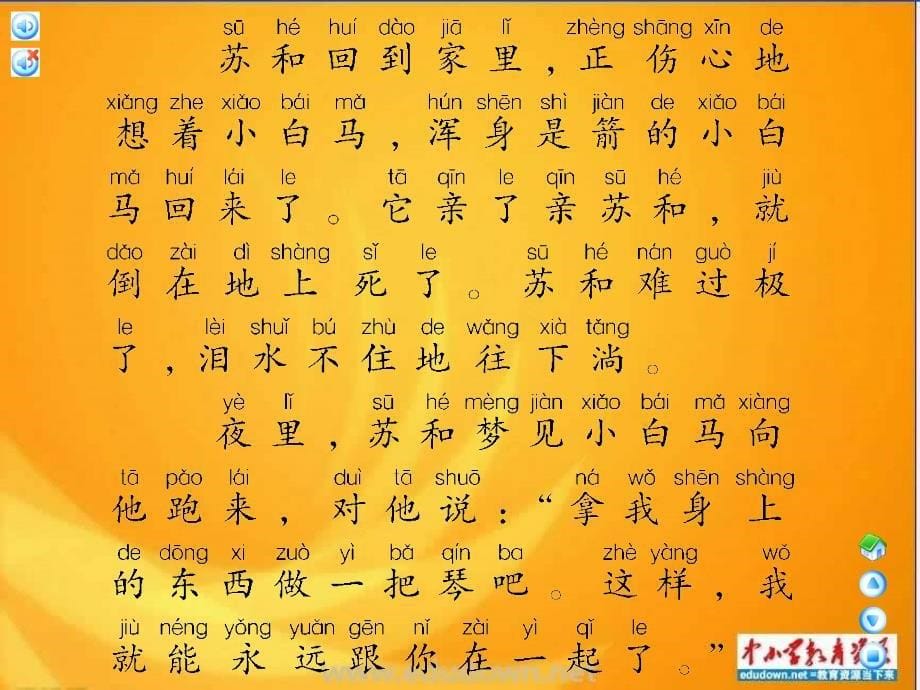 sū hé huí dào jiā lǐ zhèng shāng xīn de
苏和回到家里，正伤心地
xiǎng zhe xiǎo bái mǎ hún shēn shì jiàn de xiǎo bái
想着小白马，浑身是箭的小白
mǎ huí lái le tā qīn le qīn sū hé jiù
马回来了。它亲了亲苏和，就
dǎo zài dì shàng sǐ le sū hé nán guò jí
倒在地上死了。苏和难过极
le lèi shuǐ bú zhù de wǎng xià tǎng
了，泪水不住地往下淌。
yè lǐ sū hé mèng jiàn xiǎo bái mǎ xiàng
夜里，苏和梦见小白马向
tā pǎo lái duì tā shuō ná wǒ shēn shàng
他跑来，对他说：“拿我身上
de dōng xi zuò yì bǎ qín ba zhè yàng wǒ
的东西做一把琴吧。这样，我
jiù néng yǒng yuǎn gēn nǐ zài yì qǐ le
就能永远跟你在一起了。”
中小学教育资源
edudown.net =教育资源当下来
www.edudown.net